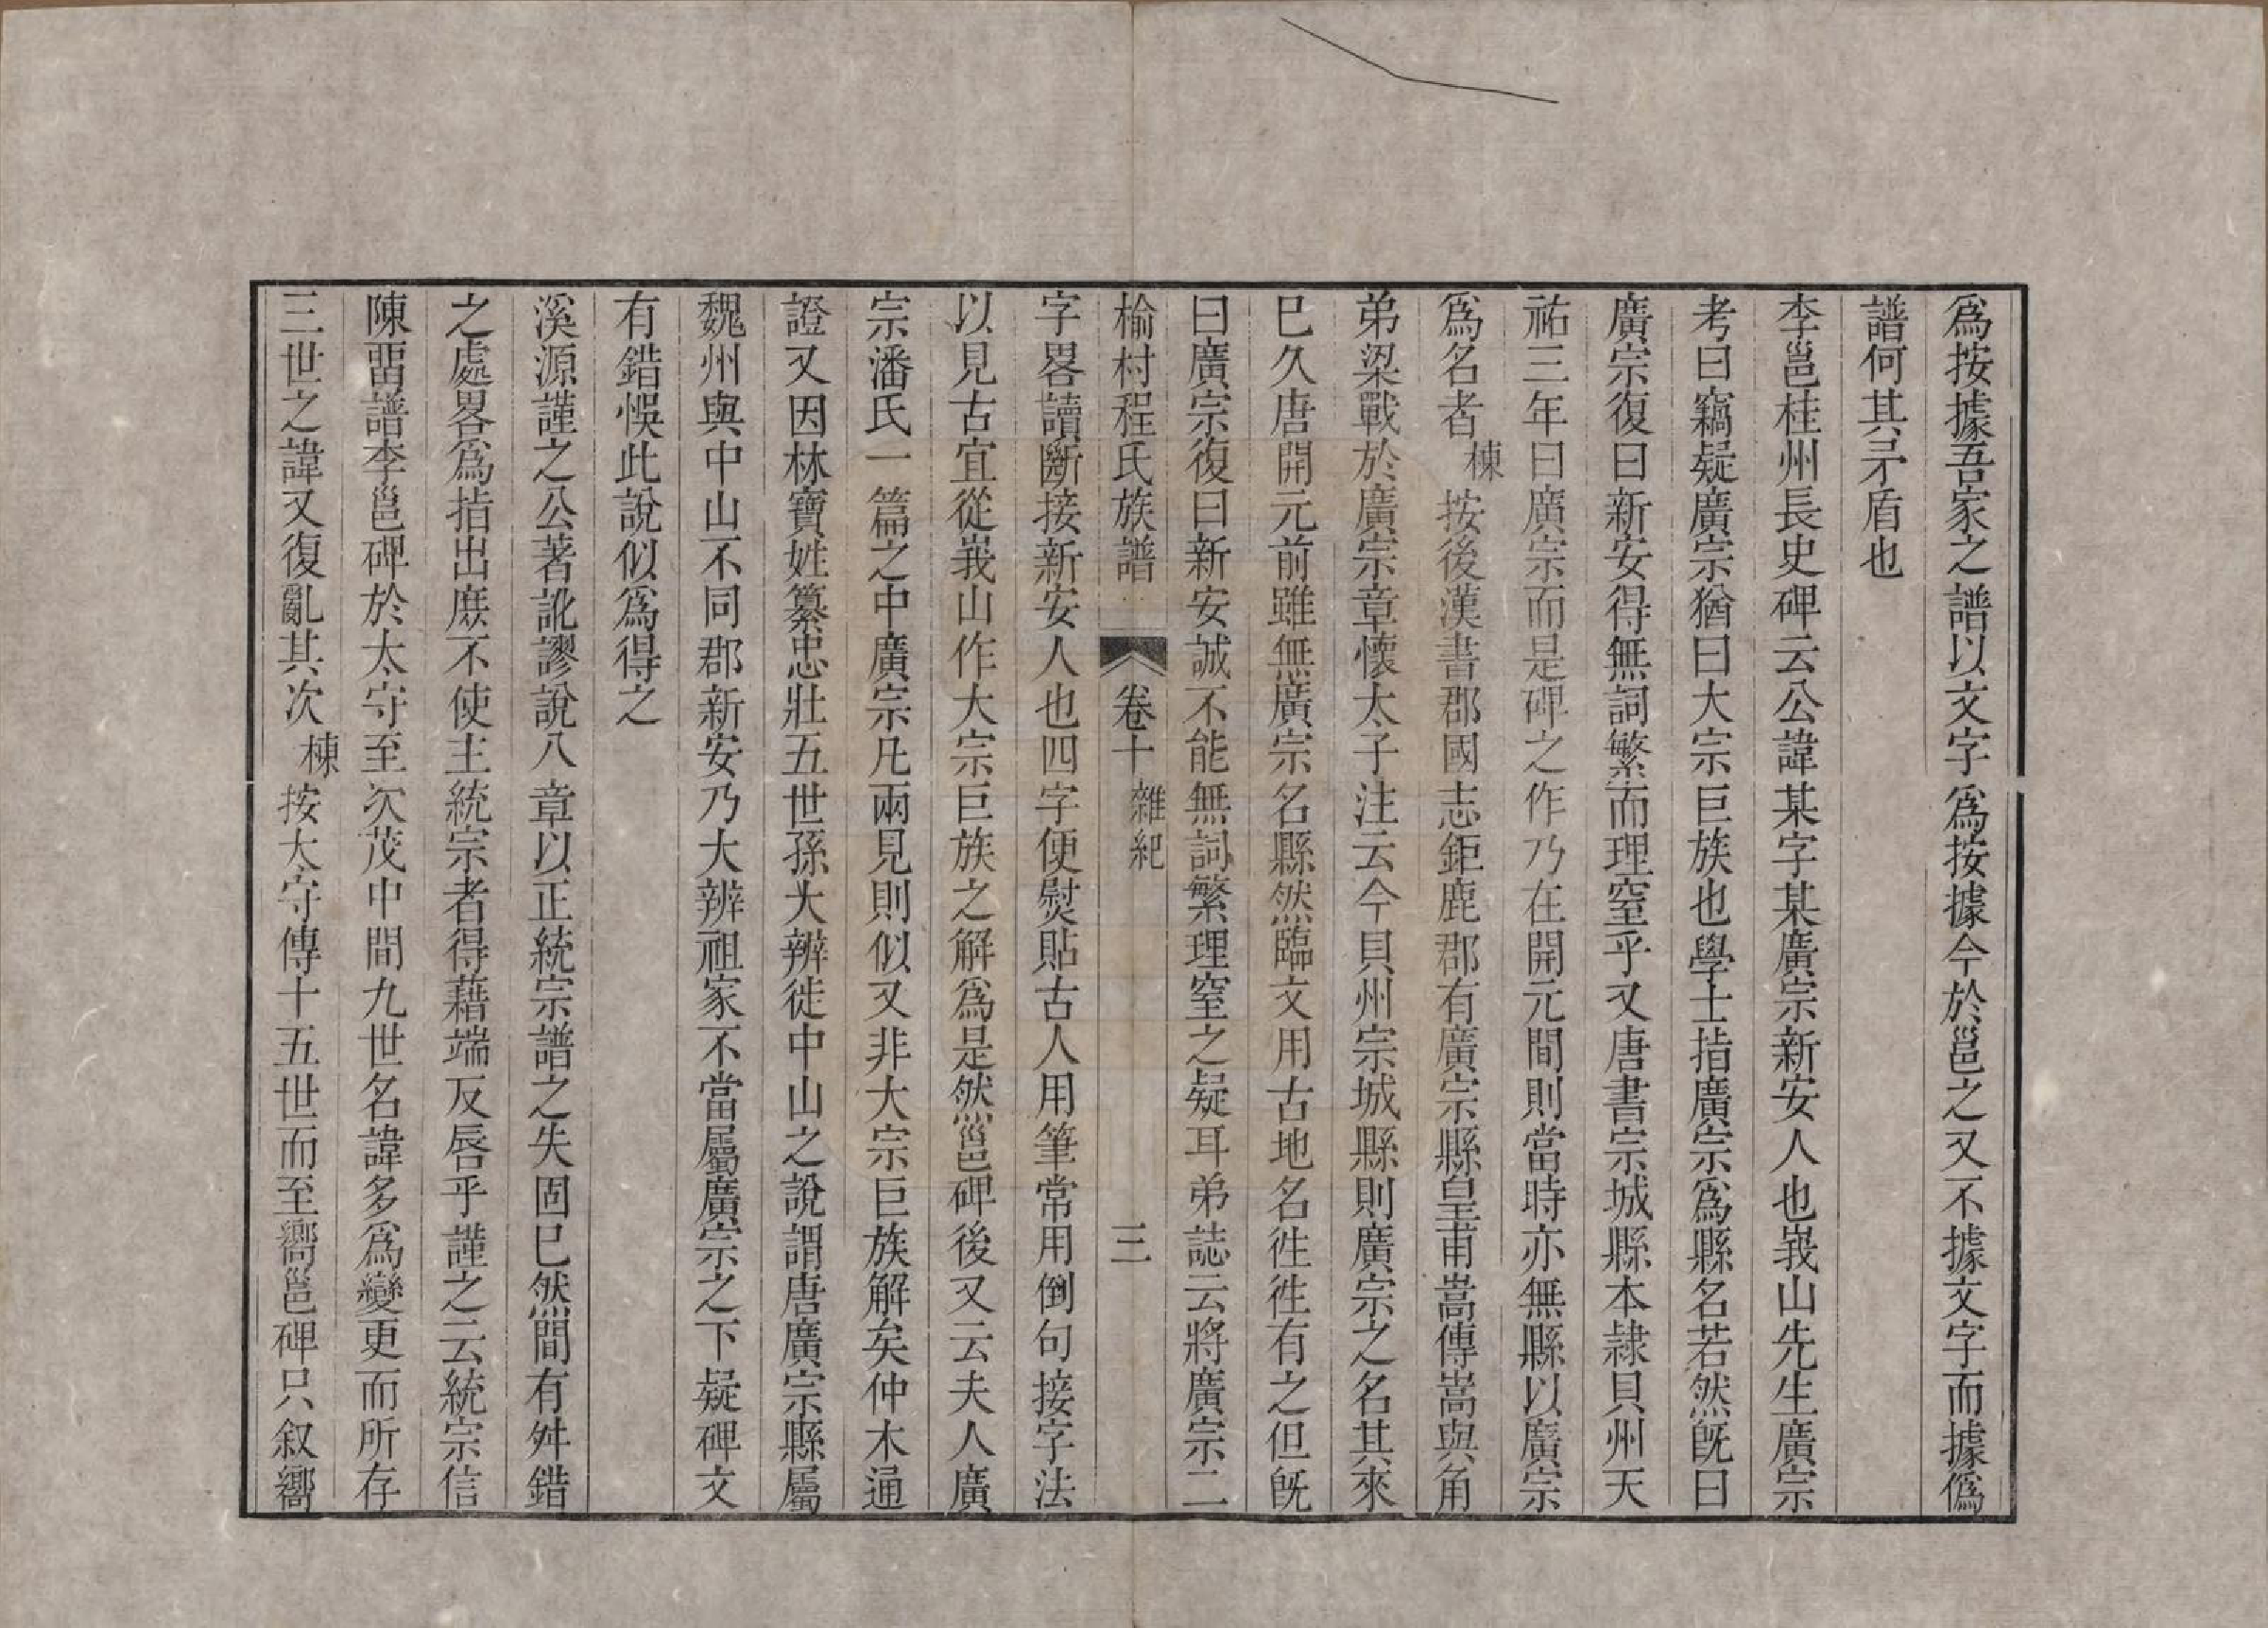 爲按據吾家之譜以文字爲按據今於邕之又不據文字而據僞
譜何其矛盾也
李邕桂州長史碑云公諱某字某廣宗新安人也峩山先生廣宗
考曰竊疑廣宗猶曰大宗巨族也學士指廣宗爲縣名若然旣曰
廣宗復曰新安得無詞繁而理窒乎又唐書宗城縣本隷貝州天
祐三年曰廣宗而是碑之作乃在開元間則當時亦無縣以廣宗
爲名者棟按後漢書郡國志鉅鹿郡有廣宗縣皇甫嵩傳嵩與角
弟梁戰於廣宗章懷太子注云今貝州宗城縣則廣宗之名其來
已久唐開元前雖無廣宗名縣然臨文用古地名徃徃有之但旣
曰廣宗復曰新安誠不能無詞繁理窒之疑耳弟誌云將廣宗二
榆村程氏族譜 卷十 雜紀 三
字畧讀斷接新安人也四字便熨貼古人用筆常用倒句接字法
以見古宜從峩山作大宗巨族之解爲是然邕碑後又云夫人廣
宗潘氏一篇之中廣宗凡兩見則似又非大宗巨族解矣仲木通
證又因林寶姓纂忠壯五世孫大辨徙中山之說謂唐廣宗縣屬
魏州與中山不同郡新安乃大辨祖家不當屬廣宗之下疑碑文
有錯悞此說似爲得之
溪源謹之公著訛謬說八章以正統宗譜之失固已然間有舛錯
之處畧爲指出庶不使主統宗者得藉端反唇乎謹之云統宗信
陳畱譜李邕碑於太守至次茂中間九世名諱多爲變更而所存
三世之諱又復亂其次棟按太守傳十五世而至嚮邕碑只叙嚮